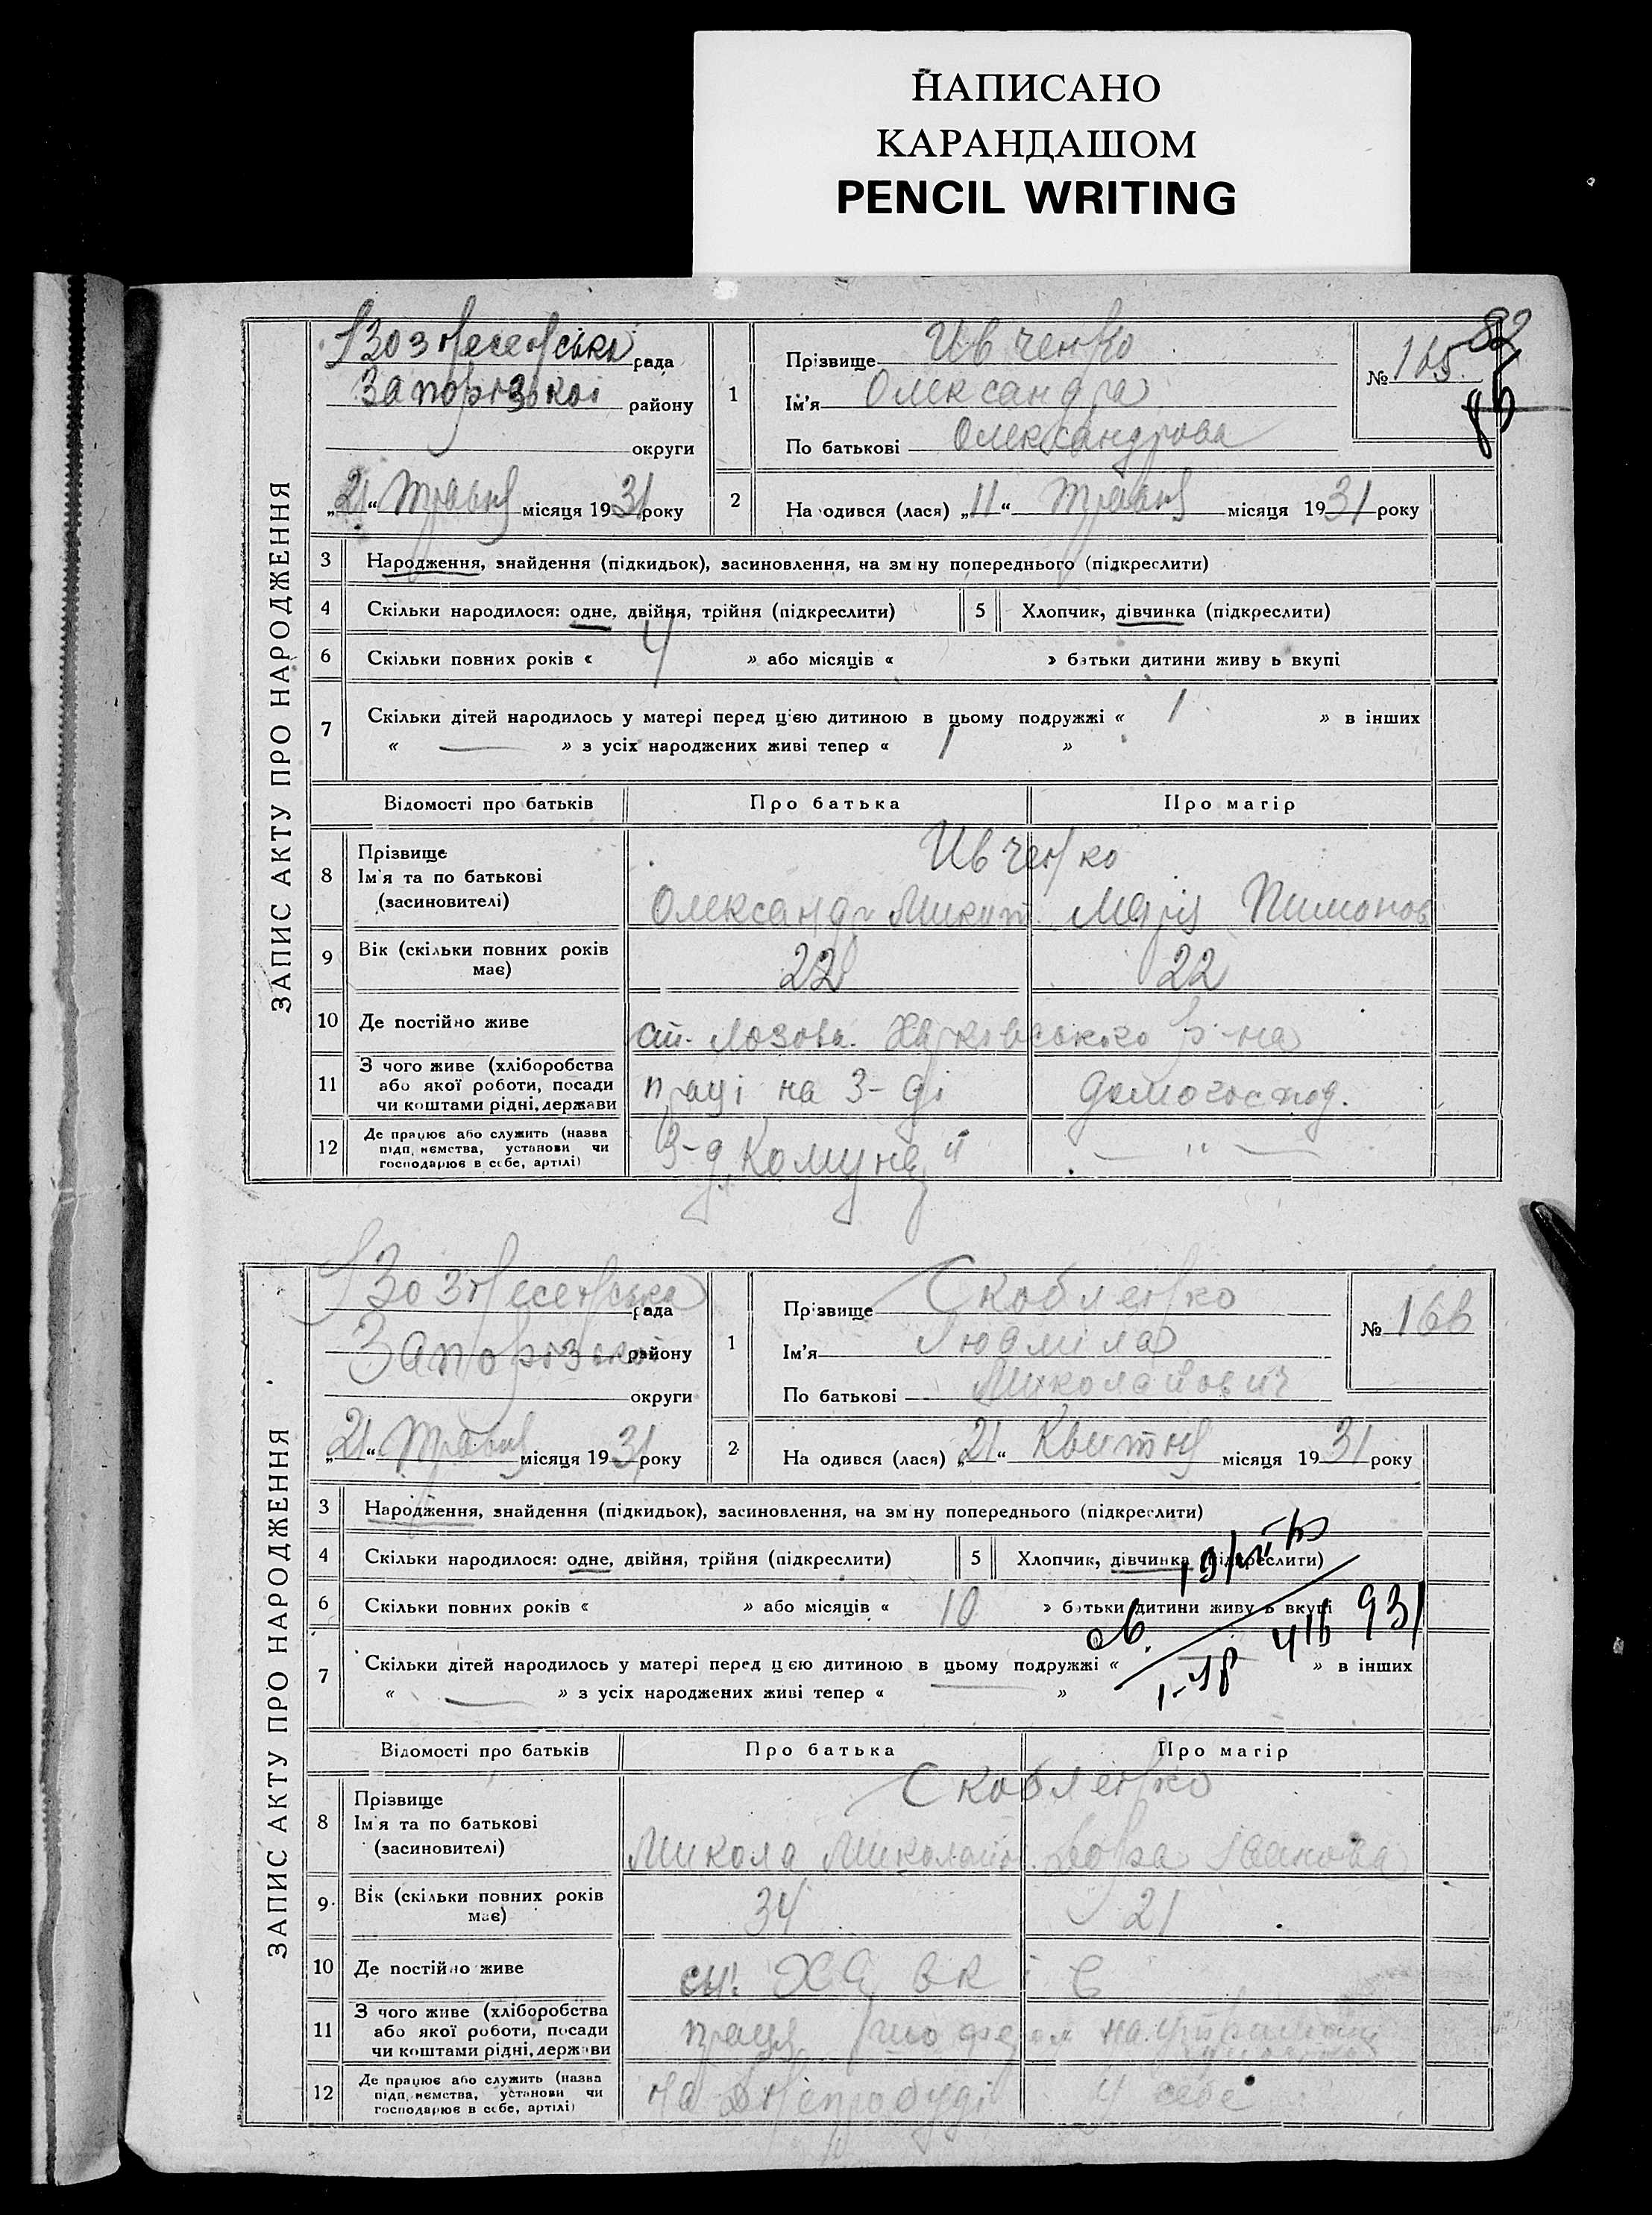 НАПИСАНО
КАРАНДАШОМ
PENCIL WRITING
82
ЗАПИС АКТУ ПРО НАРОДЖЕННЯ
Вознесенська рада
Запорізької району
округи
„21“ Травня місяця 1931 року
1 Прізвище Ивченко
Ім'я Олександра
По батькові Олександрова
№ 165
2 На одився (лася) „11“ Травня місяця 1931 року
3 Народження, знайдення (підкидьок), засиновлення, на зм ну попереднього (підкреслити)
4 Скільки народилося: одне, двійня, трійня (підкреслити) 5 Хлопчик, дівчинка (підкреслити)
6 Скільки повних років « 4 » або місяців « » батьки дитини живу ь вкупі
7 Скільки дітей народилось у матері перед цією дитиною в цьому подружжі « 1 » в інших
« — » з усіх народжених живі тепер « 1 »
Відомості про батьків Про батька Про матір
8 Прізвище
Ім'я та по батькові
(засиновителі)
Ивченко
Олександр Микит. Марія Пимонов
9 Вік (скільки повних років
має)
22 22
10 Де постійно живе ст. Лозова. Харківського р-на
11 З чого живе (хліборобства
або якої роботи, посади
чи коштами рідні, держави
праці на З-ді домогоспод.
12 Де працює або служить (назва
підп, немства, установи чи
господарює в себе, артілі)
З-д „Комунар" — " —
ЗАПИС АКТУ ПРО НАРОДЖЕННЯ
Вознесенська рада
Запорізької району
округи
„21“ Травня місяця 1931 року
1 Прізвище Скобленко
Ім'я Людміла
По батькові Миколайович
№ 166
2 На одився (лася) „21“ Квитня місяця 1931 року
3 Народження, знайдення (підкидьок), засиновлення, на зм ну попереднього (підкреслити)
4 Скільки народилося: одне, двійня, трійня (підкреслити) 5 Хлопчик, дівчинка (підкреслити)
6 Скільки повних років « » або місяців « 10 » батьки дитини живу ь вкупі
931
7 Скільки дітей народилось у матері перед ц єю дитиною в цьому подружжі « » в інших
« — » з усіх народжених живі тепер « — »
Відомості про батьків Про батька Про матір
8 Прізвище
Ім'я та по батькові
(засиновителі)
Скобленко
Микола Миколайо. Іванова
9 Вік (скільки повних років
має)
34 21
10 Де постійно живе
11 З чого живе (хліборобства
або якої роботи, посади
чи коштами рідні, держави
праця шофером на
12 Де працює або служить (назва
підп, немства, установи чи
господарює в себе, артілі)
на Дніпробуді у себе